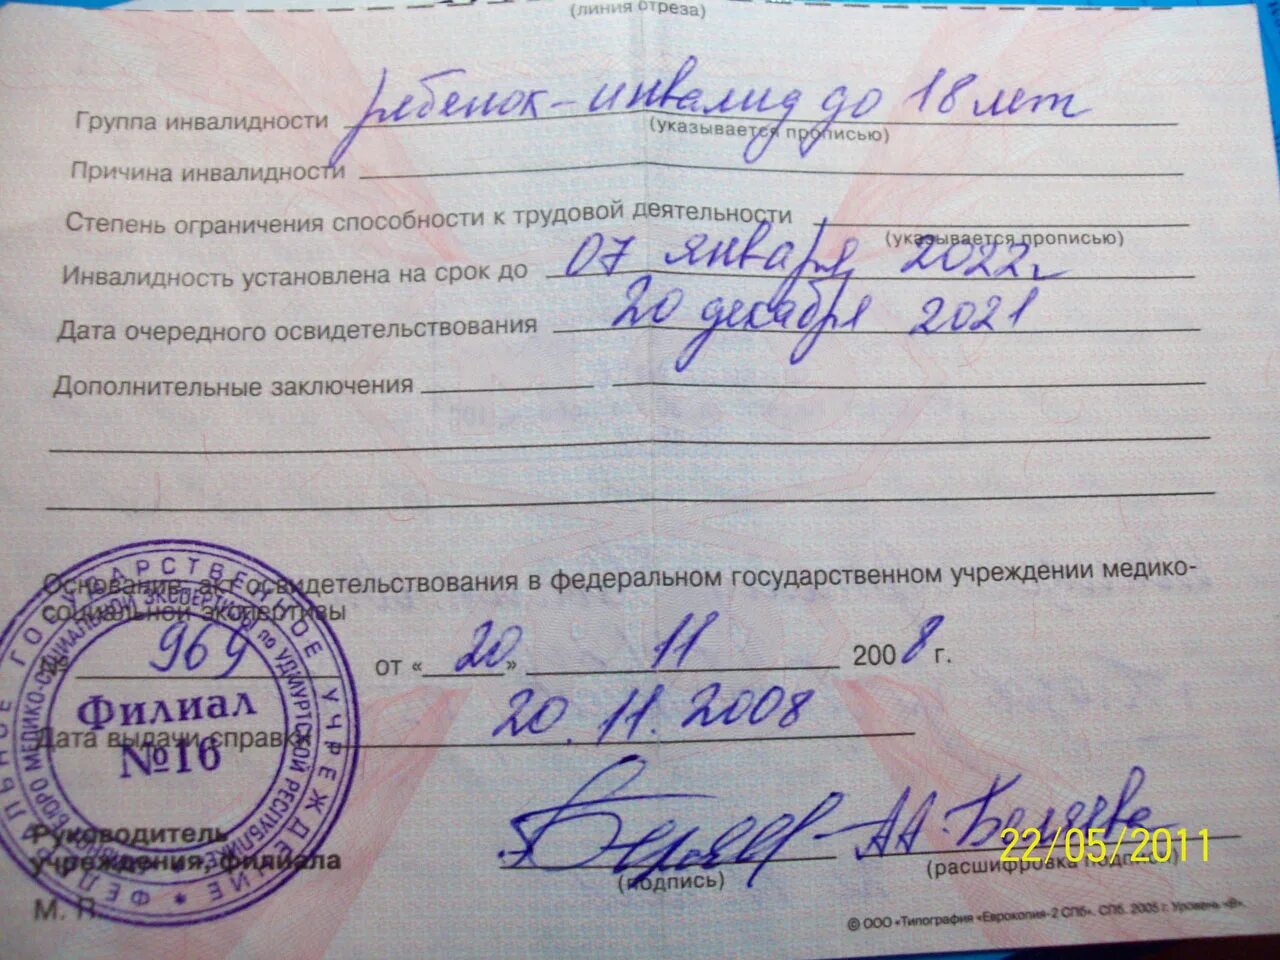 (линия отреза)
Группа инвалидности ребенок-инвалид до 18 лет
(указывается прописью)
Причина инвалидности
Степень ограничения способности к трудовой деятельности
(указывается прописью)
Инвалидность установлена на срок до 07 января 2022г
Дата очередного освидетельствования 20 декабря 2021
Дополнительные заключения
Основание: акт освидетельствования в федеральном государственном учреждении медико-
социальной экспертизы
№ 969 от «20» 11 2008 г.
Дата выдачи справки 20.11.2008
Филиал
№16
Руководитель
учреждения, филиала
А.А. Беляева
(подпись)
(расшифровка подписи)
М. П.
22/05/2011
© ООО «Типография «Еврокопия-2 СПб». СПб. 2005 г. Уровень «В».
ФЕДЕРАЛЬНОЕ ГОСУДАРСТВЕННОЕ УЧРЕЖДЕНИЕ
БЮРО МЕДИКО-СОЦИАЛЬНОЙ ЭКСПЕРТИЗЫ по УДМУРТСКОЙ РЕСПУБЛИКЕ